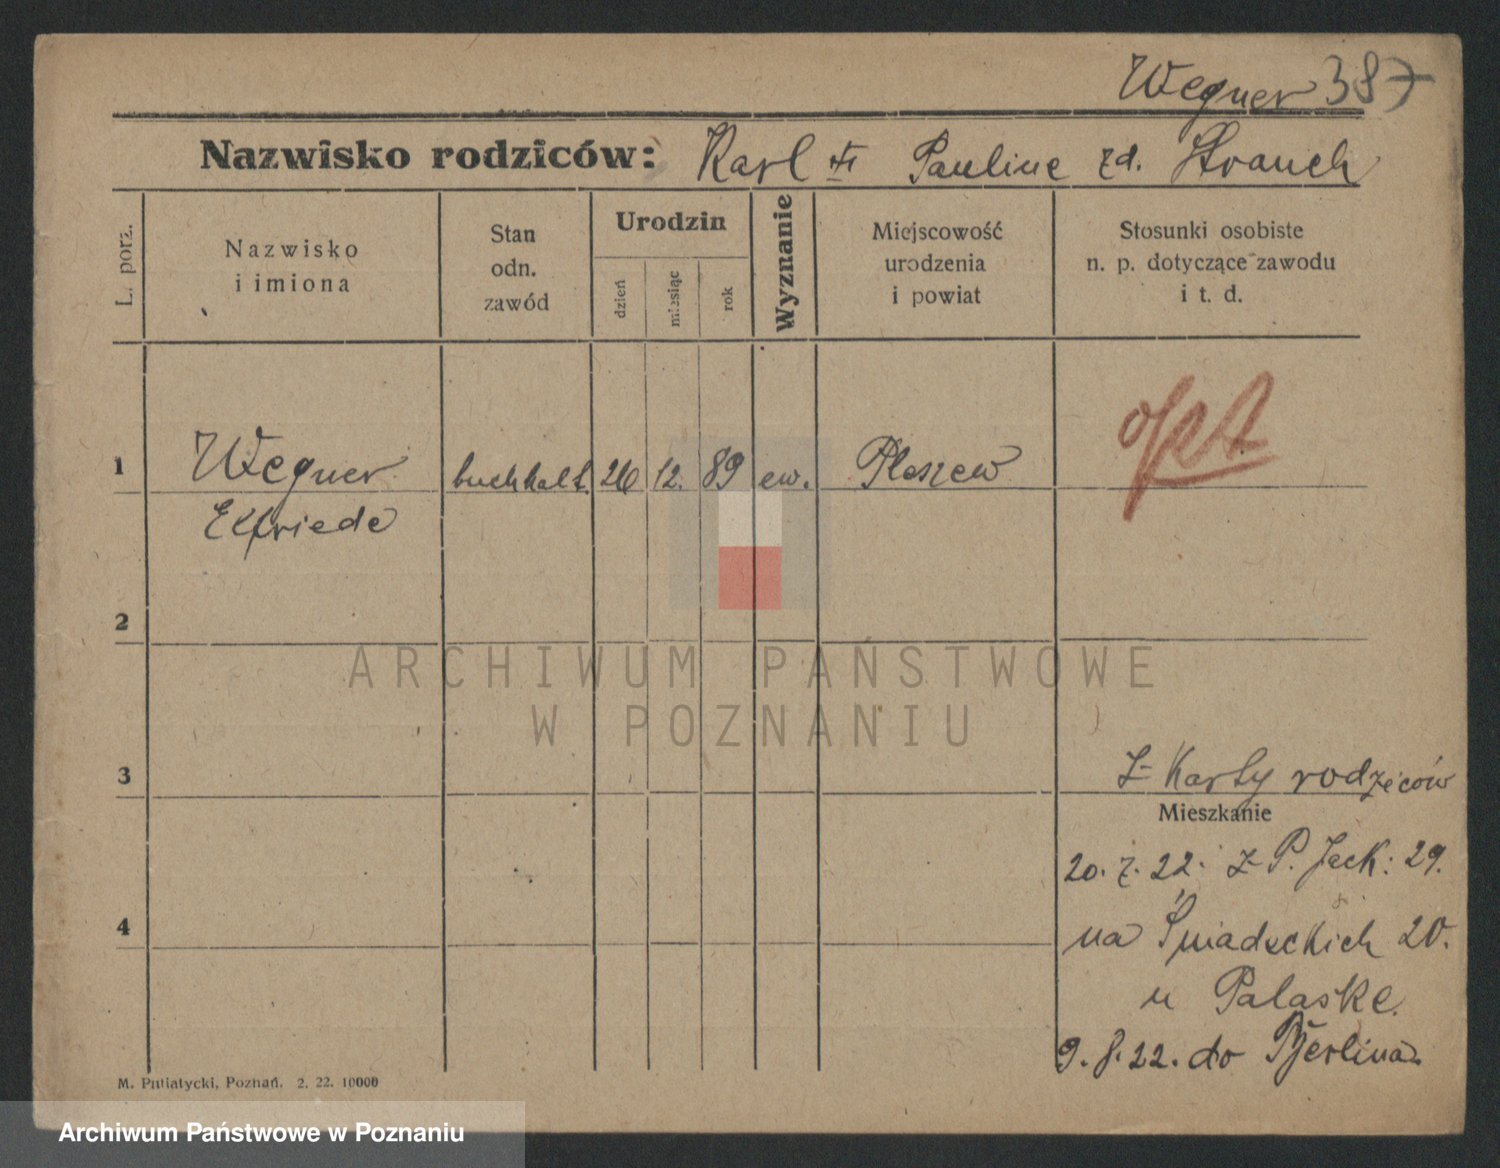 Wegner 387
Nazwisko rodziców: Karl Pauline zd. Strauch
L. porz.
Nazwisko
i imiona
Stan
odn.
zawód
Urodzin
dzień
miesiąc
rok
Wyznanie
Miejscowość
urodzenia
i powiat
Stosunki osobiste
n. p. dotyczące zawodu
i t. d.
1
Wegner buchhalt. 26 12. 89 ew. Pleszew
Elfriede
opt
2
ARCHIWUM PAŃSTWOWE
W POZNANIU
3
z Karty rodziców
Mieszkanie
20. 7. 22. z P. Jack: 29.
4
na Śniadeckich 20.
u Palaske.
9. 8. 22. do Berlina.
M. Putiatycki, Poznań. 2. 22. 10000
Archiwum Państwowe w Poznaniu